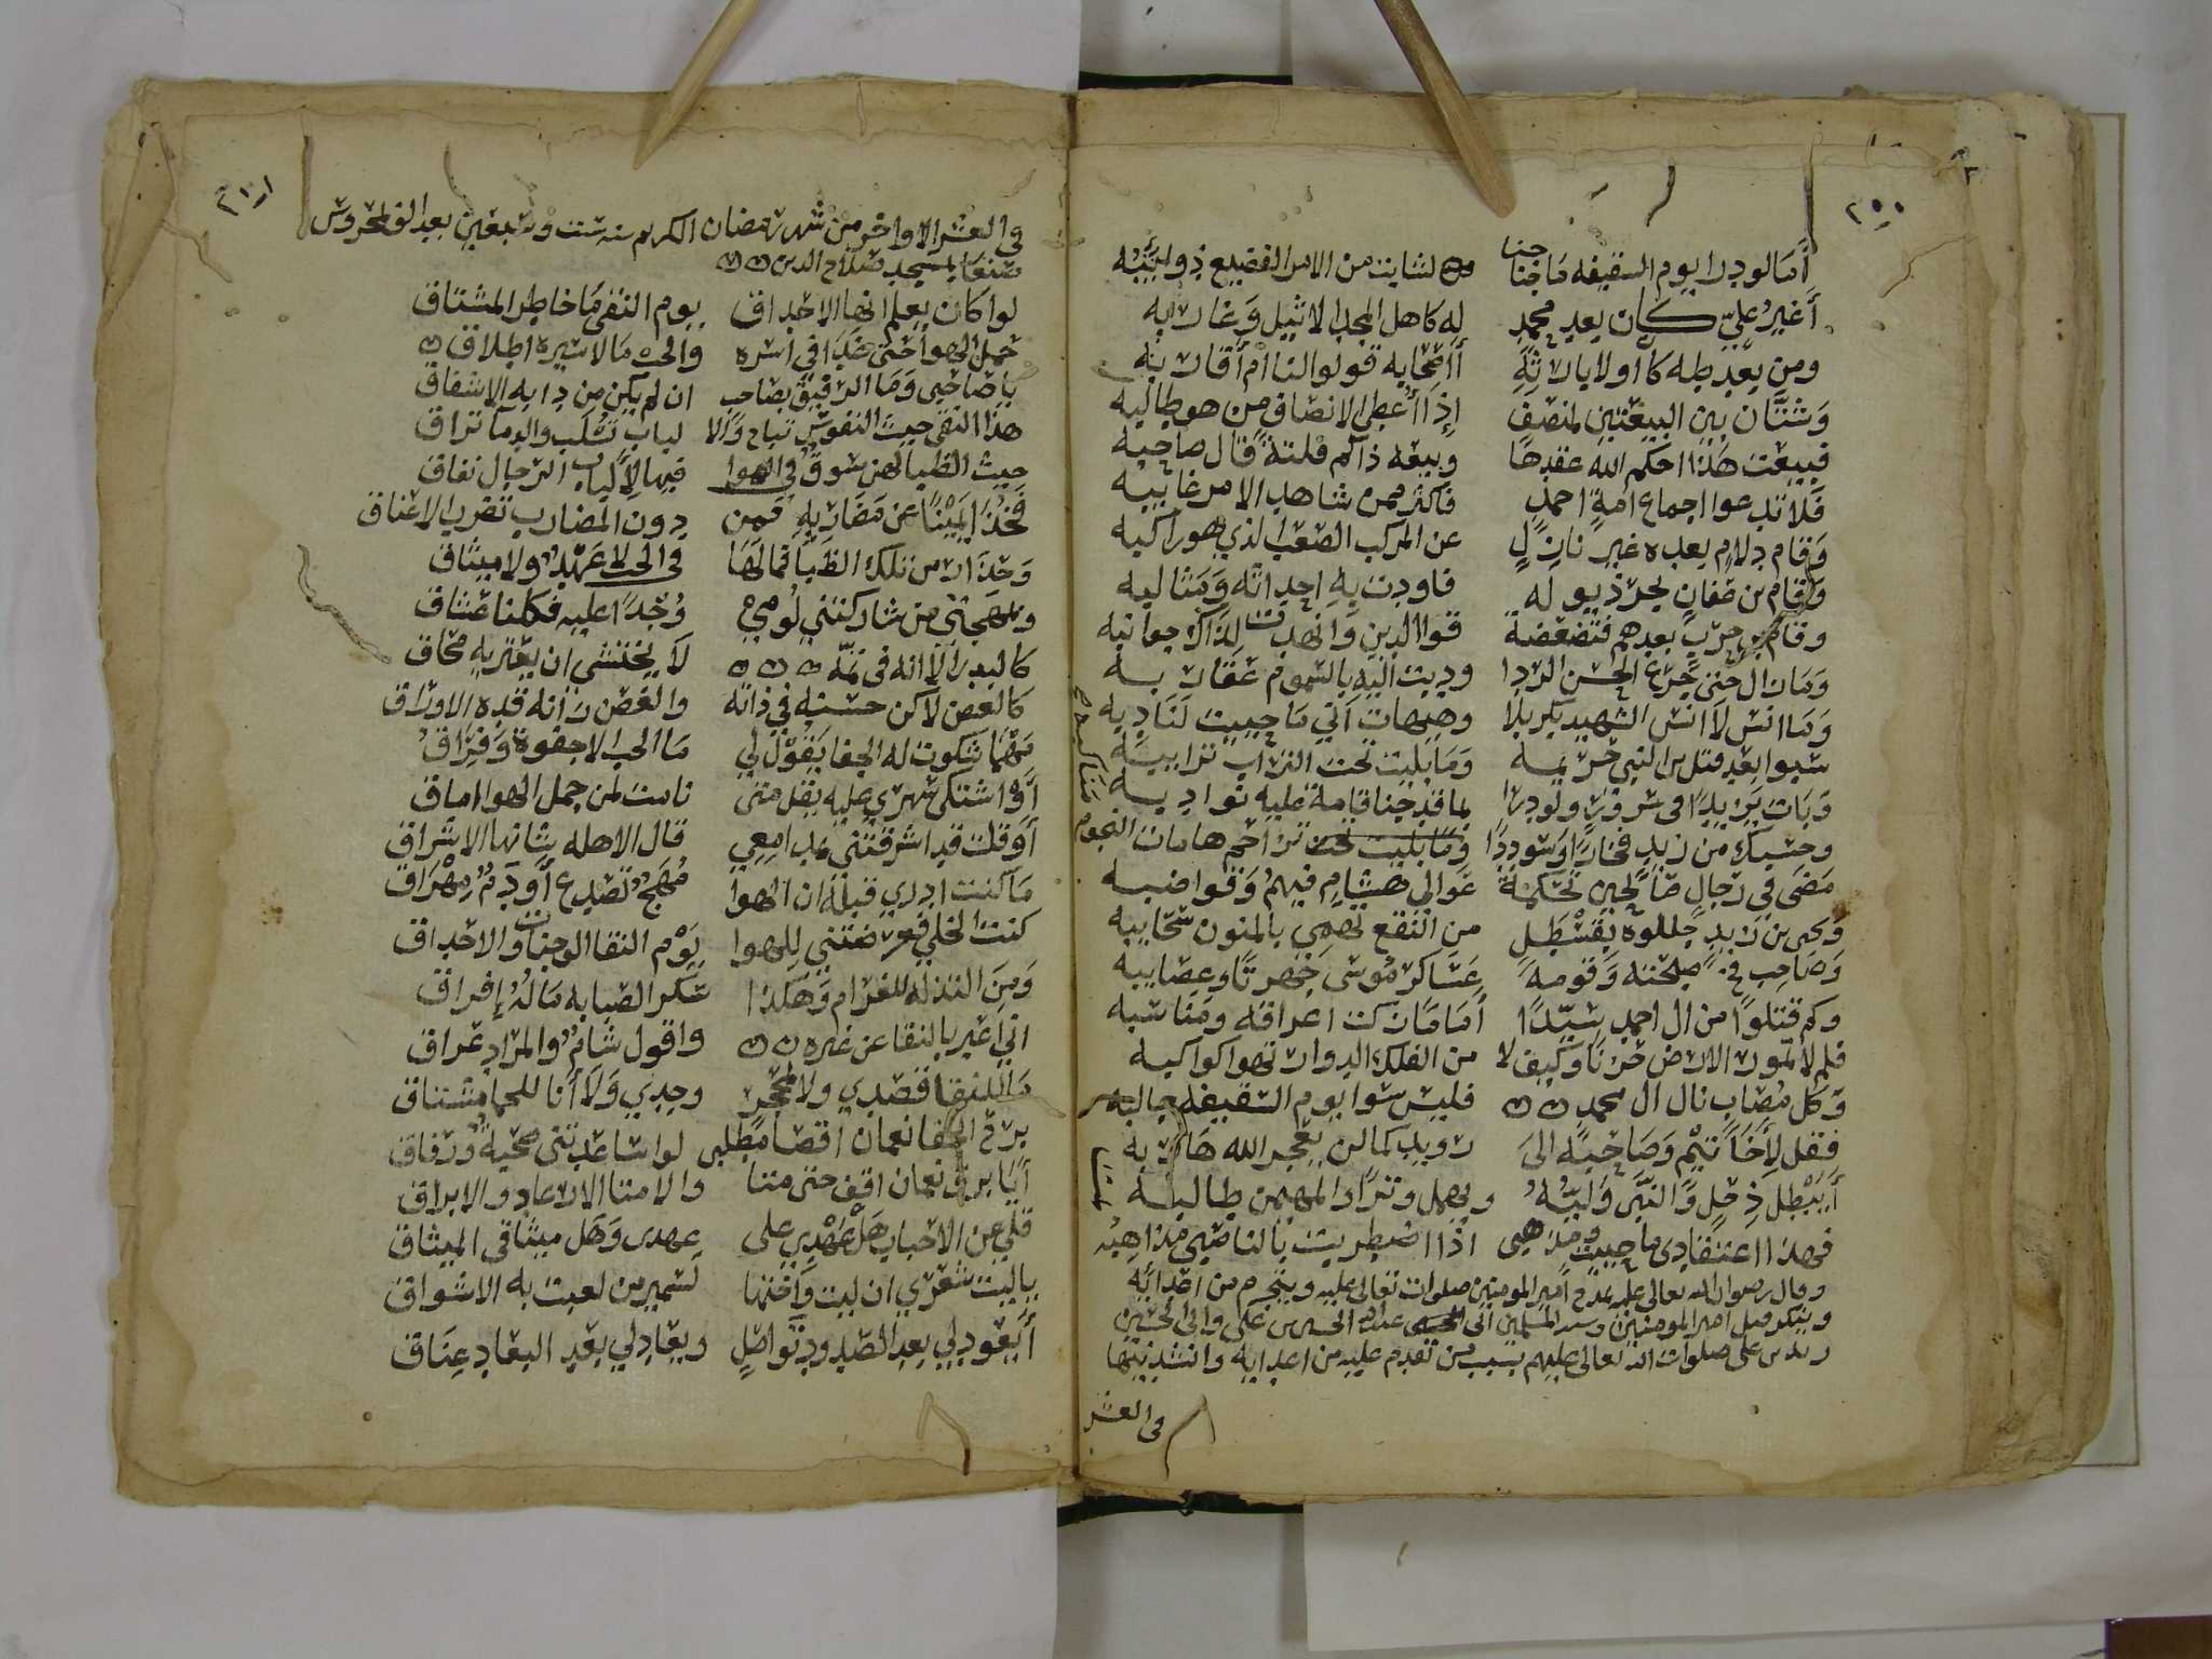 أما لو درا يوم السقيفه ما جنا لشابت من الامر الفضيع ذوايبه
أغير علي كان بعد محمد له كاهل المجد الاثيل وغاربه
ومن بعد طه كان اولا بارثه أاصحابه قولوا لنا ام أقاربه
وشتان بين البيعتين لمنصف إذا أعطي الانصاف من هو طالبه
فبيعت هذا احكم الله عقدها وبيعه ذاكم فلتة قال صاحبه
فلا تدعوا اجماع امة احمد فاكثر ممن شاهد الامر غايبه
وقام دلام بعده غير نازل عن المركب الصعب الذي هو راكبه
وقام بن عفان يجر ذيوله فاودت به احداثه ومثالبه
وقام بن حرب بعدهم فتضعضعت قوا الدين وانهدت لذاك جوانبه
وما زال حتى جرع الحسن الردا ودبت اليه بالسموم عقاربه
وما انس لا انس الشهيد بكربلا وهيهات أني ما حييت لنادبه
سبوا بعد قتل بن النبي حريمه وما بليت تحت التراب ترايبه
وبات يزيدا في سرور ولودرا بما قد جنا قامة عليه نوادبه
وحسبك من زيد فخارا وسوددا تزاحم هامات النجوم مناكبه
مضى في رجال صالحين تحكمة عوالي هشام فيهم وقواضبه
ويحيى بن زيد جللوه بقسطل من النقع تهمي بالمنون سحايبه
وصاحب فخ صبحته وقومه عساكر موسى جهرتا وعصايبه
وكم قتلوا من ال احمد سيدا أماما زكت اعراقه ومناسبه
فلم لا تمور الارض حزنا وكيف لا من الفلك الدوار تهوا كواكبه
وكل مصاب نال ال محمد فليس سوا يوم السقيفه جالبه
فقل لأخا تيم وصاحبه الى رويد كما لن يعجز الله هاربه
أيبطل ذحل والنبي وليه ويهمل وتر والمهيمن طالبه
فهذا اعتقادي ما حييت ومذهبي اذا اضطربت بالناصبي مذاهبه
وقال رضوان الله تعالى عليه يمدح أمير المومنين صلوات تعالى عليه ويتجرم من اعدائه
وينكر قتل امير المومنين وسيد المسلمين ابى عبدالله الحسين بن علي والى الحسين
زيد بن على صلوات الله تعالى عليهم بسبب من تقدم عليه من اعدايه وانشد بيتها
في العشر
في العشر الاواخر من شهر رمضان الكريم سنه ست وسبعين بعد الف لمحروس
صنعا بمسجد صلاح الدين
لوا كان يعلم انها الاحداق يوم النقى ما خاطر المشتاق
جهل الهوا حتى غدا في أسره والحب ما لاسيره اطلاق
يا صاحبي وما الرفيق بصاحب ان لم يكن من دابه الاشفاق
هذا النقى حيث النفوس تباح والا لباب تسلب والدما تراق
حيث الظبا لهن سوق في الهوا فيها لألباب الرجال نفاق
فخذا يمينا عن مضاربه فمن دون المضارب تضرب الاعناق
وحذار من تلك الظبا فما لها في الحب لا عهد ولا ميثاق
وبمهجتي من شاركتني لومي وجدا عليه فكلنا عشاق
كالبدر الا انه في تمه لا يختشى ان يعتريه محاق
كالغصن لاكن حسنه في ذاته والغصن زانه قده الاوراق
مهما شكوت له الجفا يقول لي ما الحب الا جفوة وفراق
أو اشتكى سهري عليه يقل متى نامت لمن جهل الهوا اماق
أو قلت قد اشرقتني بمدامعي قال الاهله شانها الاشراق
ما كنت ادري قبله ان الهوا مهج تصدع أو دم مهراق
كنت الخلي فعرضتني للهوا يوم النقا الوجنات والاحداق
ومن التدله للغرام وهكذا سكر الصبابه ماله إفراق
اني اعير بالنقا عن غيره واقول شام والمراد عراق
ما للنقا قصدي ولا لمحجر وجدي ولا أنا للحما مشتاق
برق الحفا نعمان اقصا مطلبي لوا ساعدتني صحبة ورفاق
أيا برق نعمان اقف حتى متا والا متا الارعاد والابراق
قلي عن الاحباب هل عهدي على عهدى وهل ميثاقي الميثاق
يا ليت شعري ان ليت واختها لسمير من لعبت به الاشواق
أيعود لي بعد الصدود تواصل ويعاد لي بعد البعاد عناق